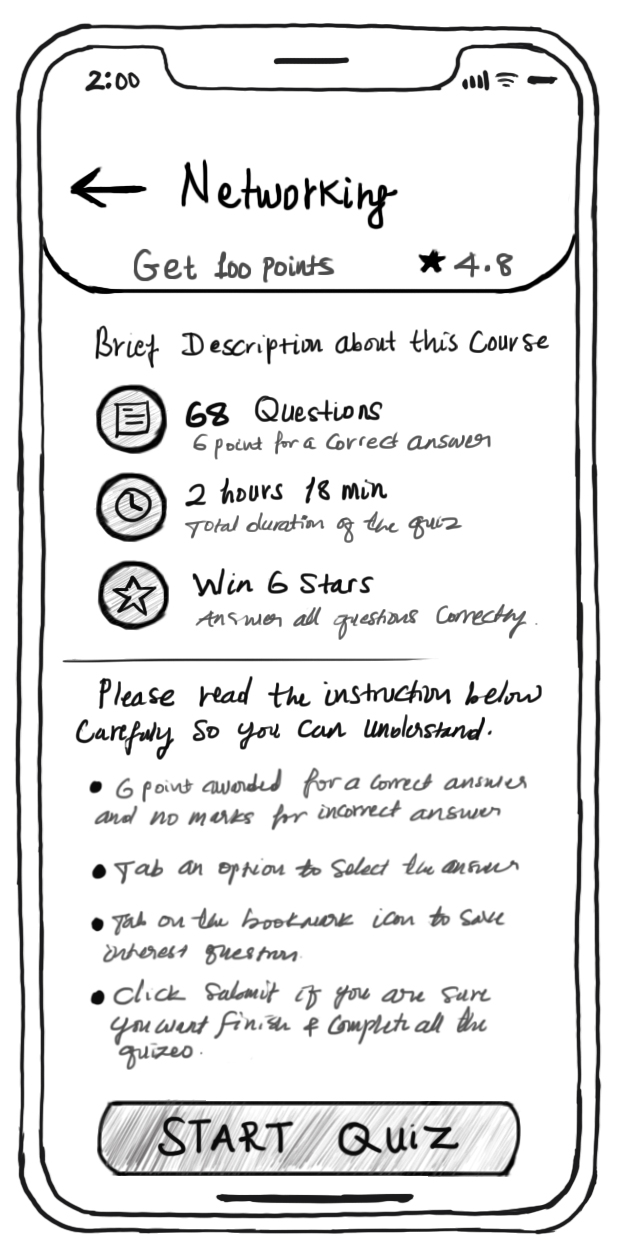 2:00
Networking
Get 100 points
4.8
Brief Description about this Course
68 Questions
6 point for a Correct answer
2 hours 18 min
Total duration of the quiz
Win 6 Stars
Answer all questions Correctly.
Please read the instruction below
Carefuly So you Can Understand.
• 6 point awarded for a Correct answer
and no marks for incorrect answer
• Tab an option to Select the answer
• Tab on the bookmark icon to Save
interest question.
• Click Submit if you are Sure
you want finish & Complete all the
quizes.
START QUIZ